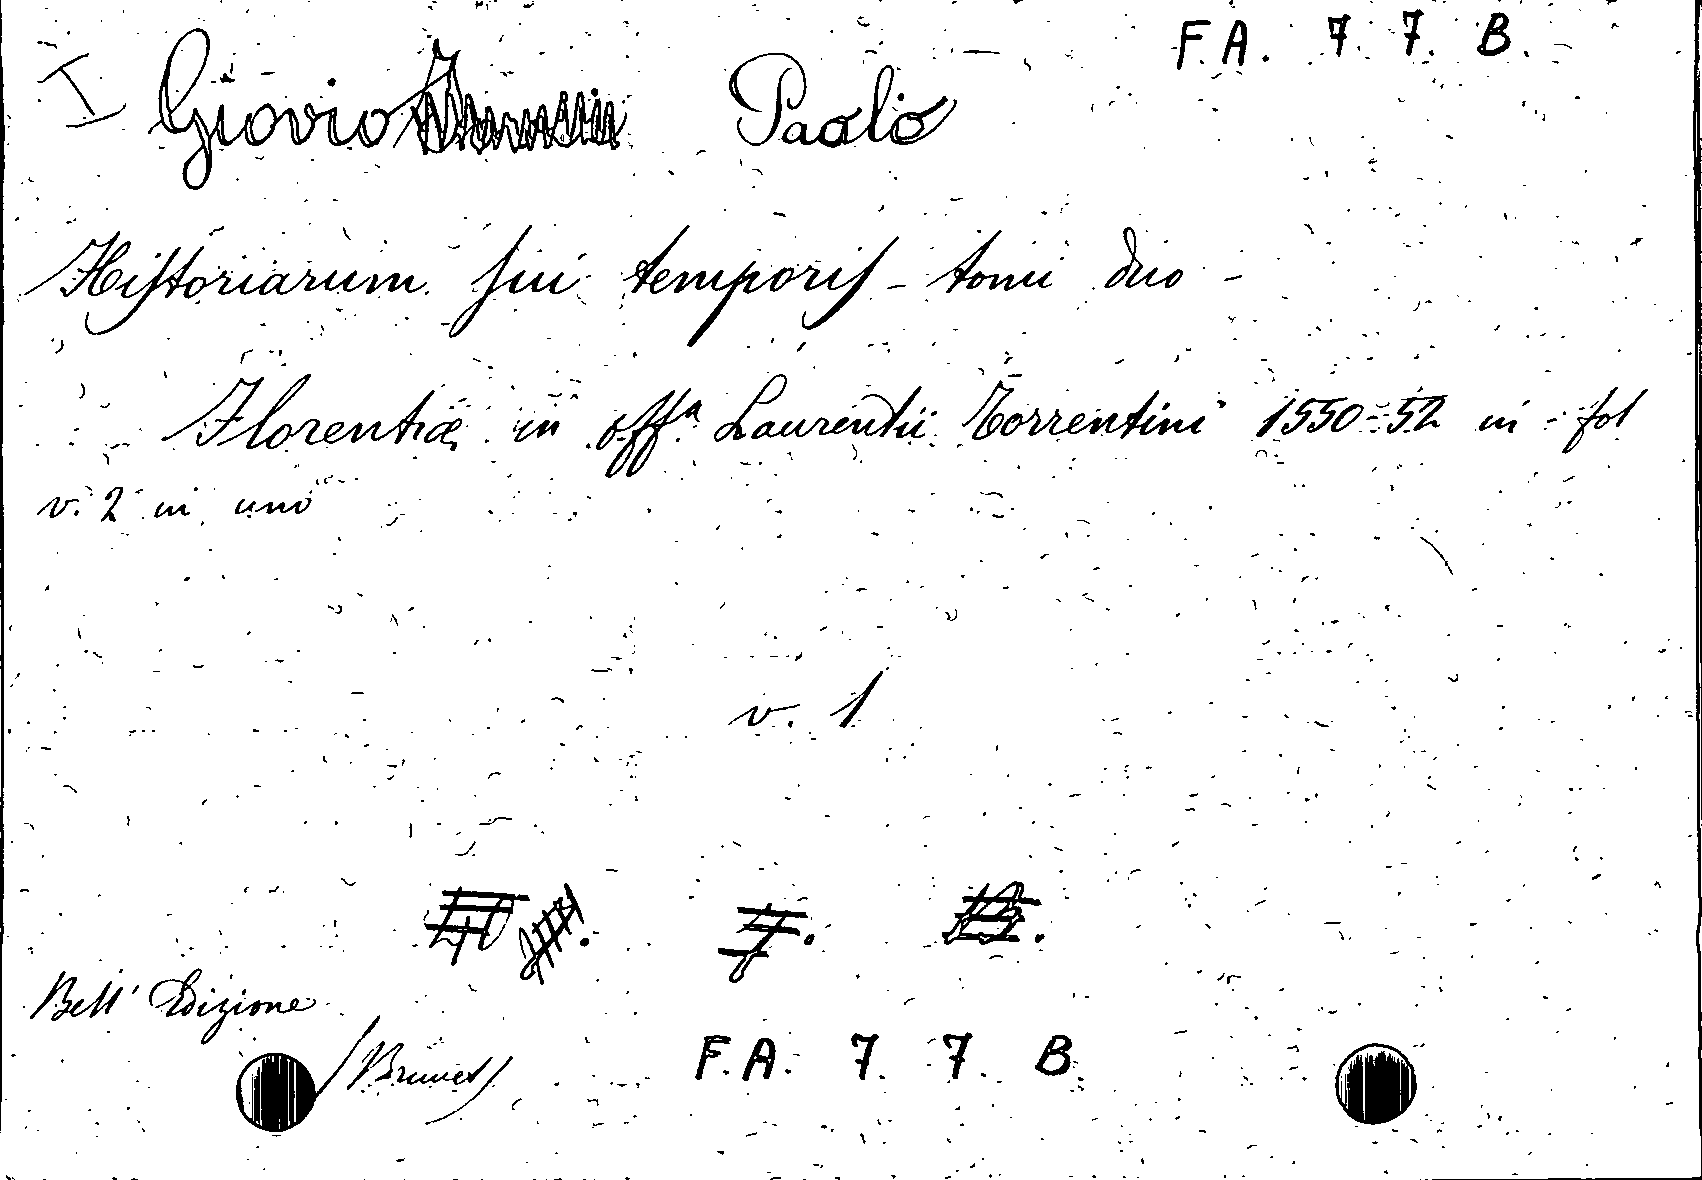 F. A. 7. 7. B.
I Giovio Paolo
Historiarum sui temporis - tomi duo -
Florentiæ in off.ª Laurentii Torrentini 1550-52 in-fol
v. 2 in uno
v. 1
Bell' Edizione
(Brunet)
F. A. 7. 7. B